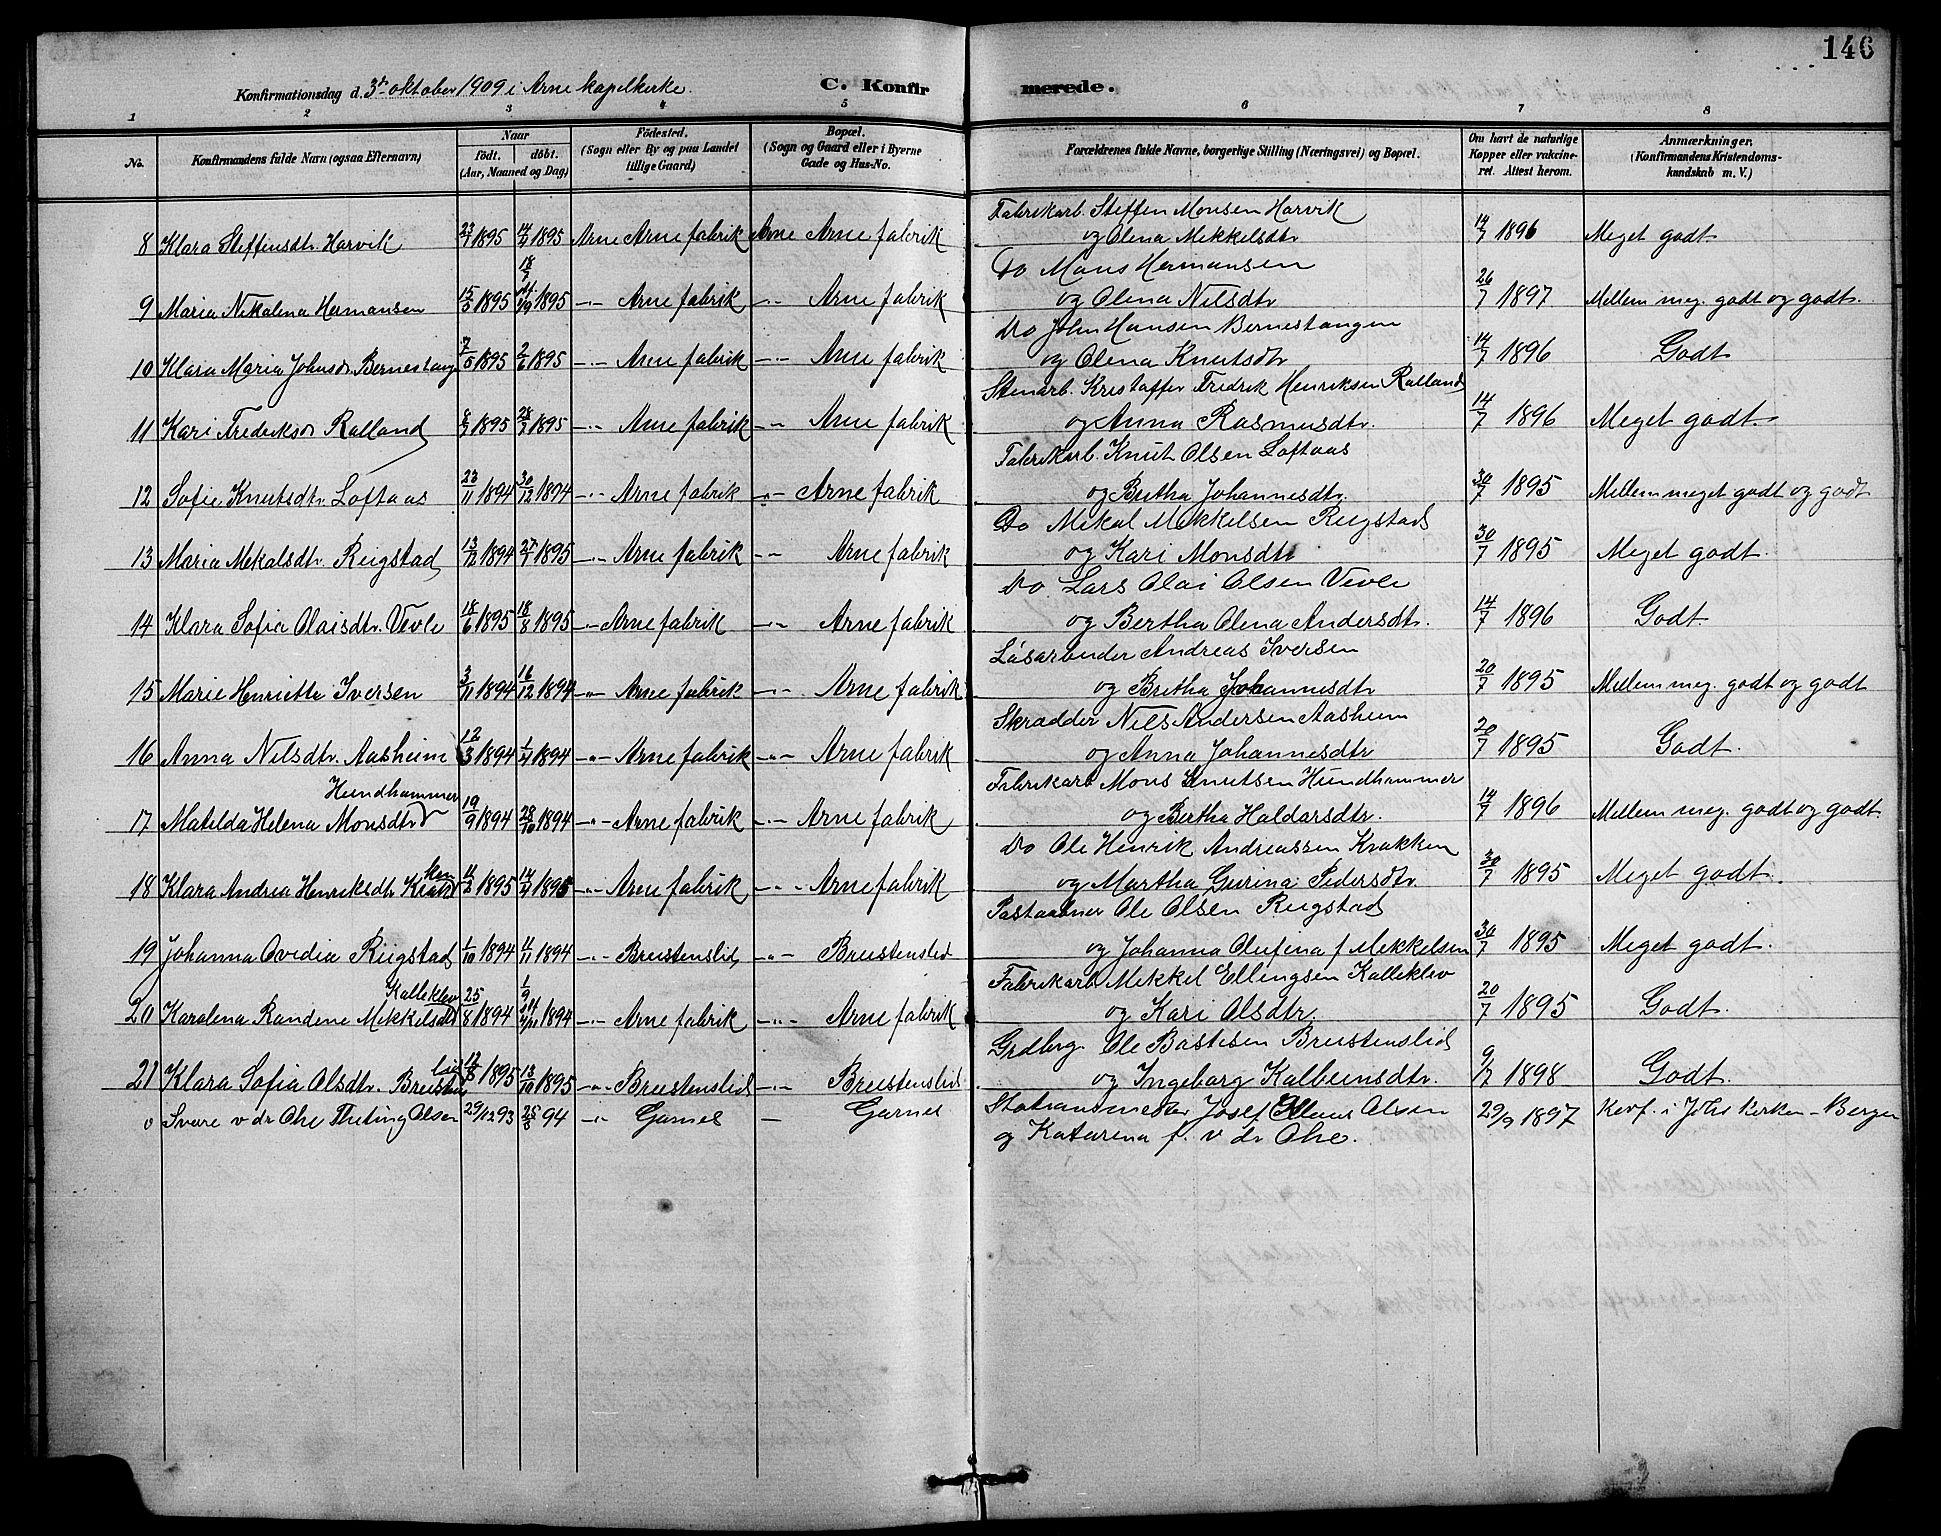 146
Konfirmationsdag d. 3die oktober 1909 i Arne kapelkirke. C. Konfirmerede.
1 2 3 4 5 6 7 8
No.
Konfirmandens fulde Navn (ogsaa Efternavn)
Naar
født. døbt.
(Aar, Maaned og Dag)
Födested.
(Sogn eller By og paa Landet
tillige Gaard)
Bopæl.
(Sogn og Gaard eller i Byerne
Gade og Hus-No.
Forældrenes fulde Navne, borgerlige Stilling (Næringsvei) og Bopæl.
Om havt de naturlige
Kopper eller vakcine-
ret. Attest herom.
Anmærkninger.
(Konfirmandens Kristendoms-
kundskab m. V.)
Fabrikarb. Steffen Monsen Harvik
8 Klara Steffensdtr. Harvik 23/7 1895 14/9 1895 Arne Arne fabrik Arne Arne fabrik og Olena Mekkelsdtr 14/7 1896 Meget godt
18/7
Do Mons Hermansen
9 Maria Nikolena Hermansen 15/5 1895 1895 -"- Arne fabrik -"- Arne fabrik og Olena Nilsdtr 26/7 1897 Mellem meg. godt og godt.
Do John Hansen Bernestangen
10 Klara Maria Johnsdr. Bernestang 7/5 1895 2/6 1895 -"- Arne fabrik -"- Arne fabrik og Olena Knutsdtr 14/7 1896 Godt
Stenarb. Kristoffer Fredrik Henriksen Ralland
11 Kari Fredriksdr Ralland 8/7 1895 28/7 1895 -"- Arne fabrik -"- Arne fabrik og Anna Rasmusdtr. 14/7 1896 Meget godt.
Fabrikarb. Knut Olsen Loftaas
12 Sofie Knutsdtr Loftaas 23/11 1894 30/12 1894 -"- Arne fabrik -"- Arne fabrik og Britha Johannesdtr. 30/7 1895 Mellem meget godt og godt
Do Mikal Mekkelsen Rugstad
13 Maria Mekalsdtr. Rugstad 13/12 1894 27/1 1895 -"- Arne fabrik -"- Arne fabrik og Kari Monsdtr 30/7 1895 Meget godt.
Do Lars Olai Olsen Vevle
14 Klara Sofia Olaisdtr. Vevle 18/6 1895 18/8 1895 -"- Arne fabrik -"- Arne fabrik og Bertha Olena Andersdtr. 14/7 1896 Godt.
Løsarbeider Andreas Iversen
15 Marie Henriette Iversen 3/11 1894 16/12 1894 -"- Arne fabrik -"- Arne fabrik og Britha Johannesdtr 20/7 1895 Mellem meg. godt og godt
Skrædder Nils Andersen Aasheim
16 Anna Nilsdtr. Aasheim 12/3 1894 1/4 1894 -"- Arne fabrik -"- Arne fabrik og Anna Johannesdtr 20/7 1895 Godt.
Hundhammer
Fabrikarb Mons Knutsen Hundhammer
17 Matilda Helena Monsdtr 19/9 1894 28/10 1894 -"- Arne fabrik -"- Arne fabrik og Bertha Haldorsdtr. 14/7 1896 Mellem meg. godt og godt.
Do Ole Henrik Andreassen Krakken
18 Klara Andrea Henriksdtr Krakken 1895 14/4 1895 -"- Arne fabrik -"- Arne fabrik og Martha Gurina Pedersdtr. 30/7 1895 Meget godt.
Postaabner Ole Olsen Rugstad
19 Johanna Ovedia Rugstad 1/10 1894 11/11 1894 -"- Breistenslid -"- Breistenslid og Johanna Olufina f Mekkelsen 30/7 1895 Meget godt.
Kalleklev
Fabrikarb. Mekkel Ellingsen Kalleklev
20 Karolena Randene Mekkelsdtr 25/8 1894 1894 -"- Arne fabrik -"- Arne fabrik og Kari Olsdtr. 20/7 1895 Godt.
Grdbrg. Ole Bastesen Breistenslid
21 Klara Sofia Olsdtr. Breistenslid 1895 13/10 1895 -"- Breistenslid -"- Breistenslid og Ingeborg Kolbeinsdtr. 9/7 1898 Godt.
0 Svære v dr Ohe Theting Olsen 29/12 93 25/3 94 -"- Garnes - Garnes Stationsmester Josef Klaus Olsen 29/9 1897 Konf. i Johs kirken - Bergen
og Katarena f. v dr Ohe.